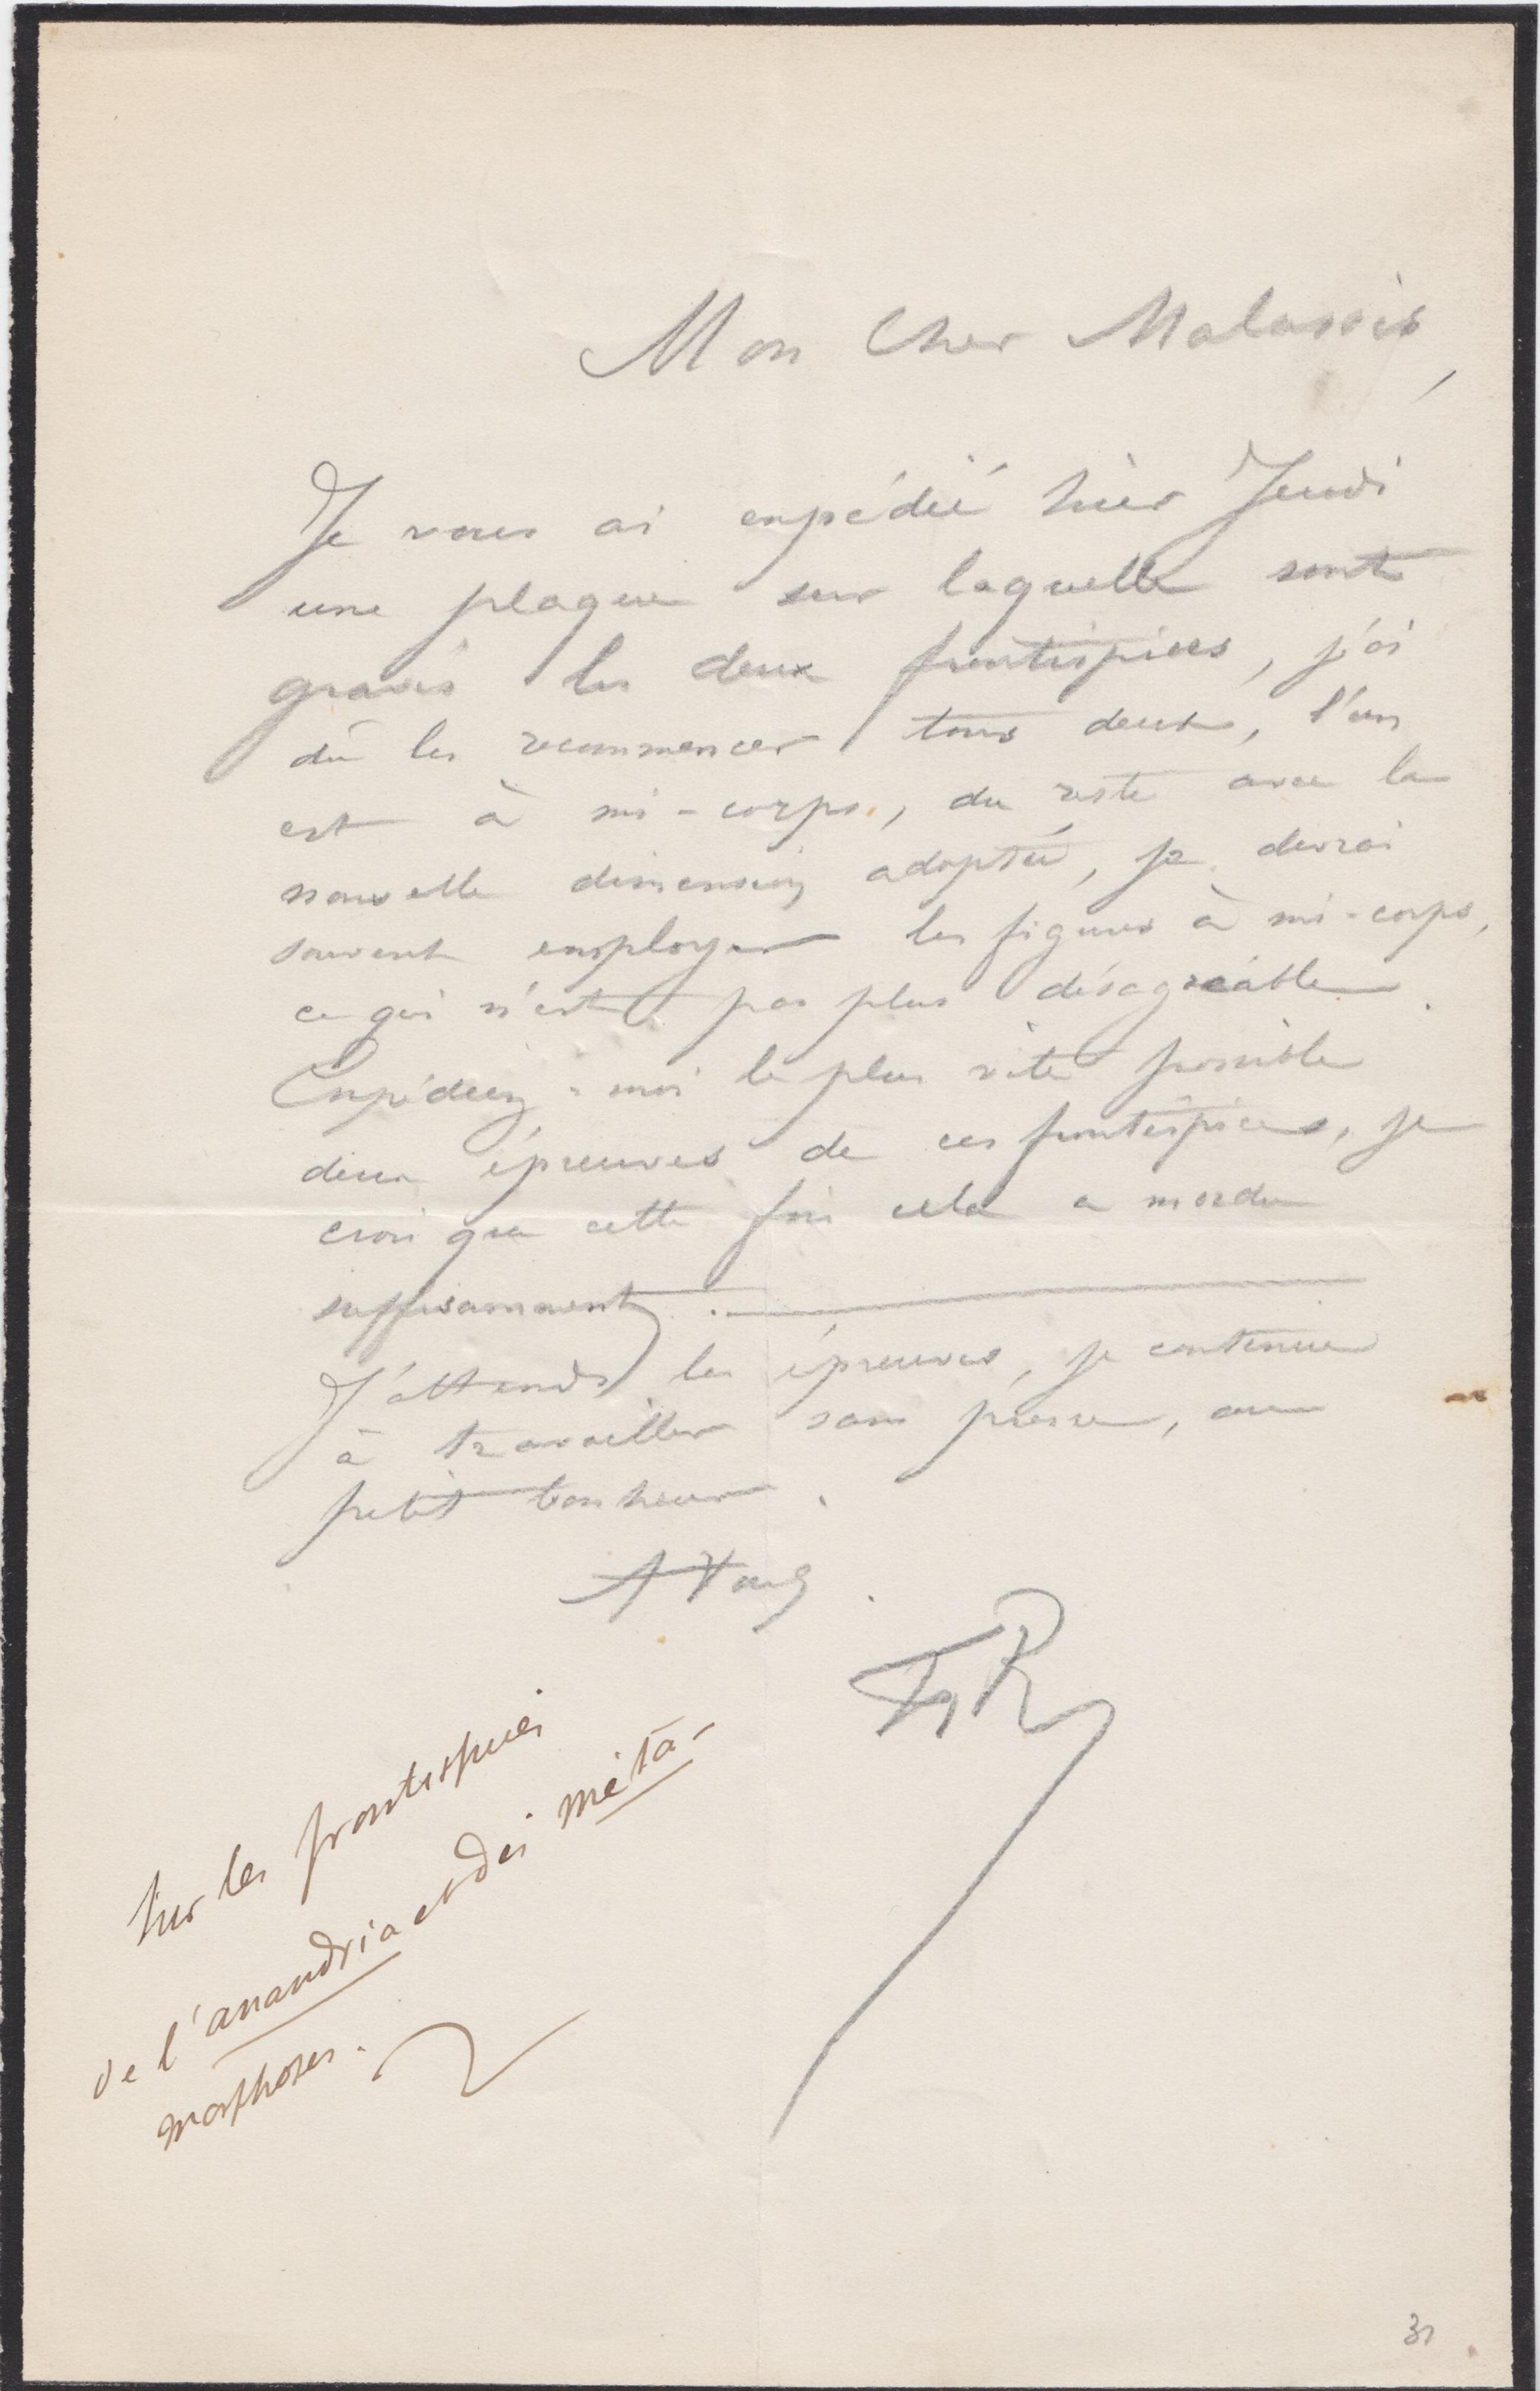 Mon Cher Malassis,
Je vous ai expédié hier Jeudi
une plaque sur laquelle sont
gravés les deux frontispices, j'ai
dû les recommencer tous deux, l'un
est à mi-corps, du reste avec la
nouvelle dimension adoptée, je devrai
souvent employer les figures à mi-corps,
ce qui n'est pas plus désagréable.
Expédiez-moi le plus vite possible
deux épreuves de ces frontispices, je
crois que cette fois cela a mordu
suffisamment.
J'attends les épreuves, je continue
à travailler sans presse, au
petit bonheur.
A Vous.
FyR
Sur les frontispices
de l'anandria et des méta-
morphoses.
31